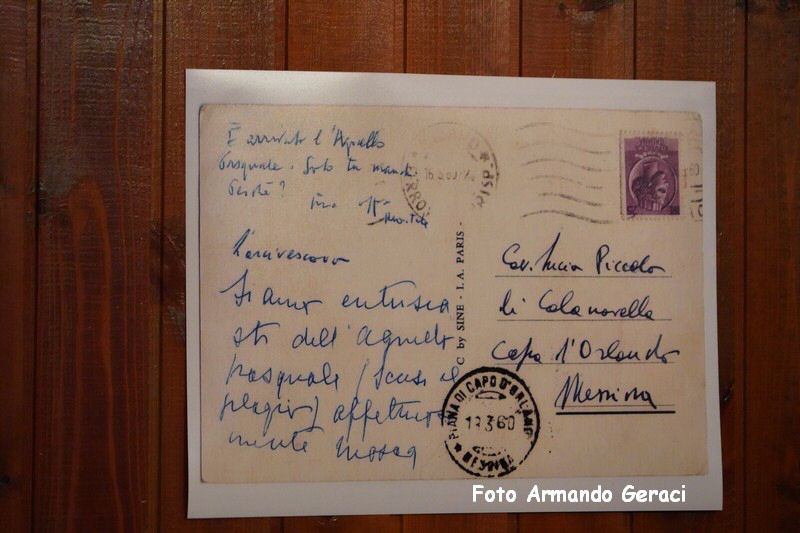 È arrivato l'Agnello
Pasquale. Solo tu manchi
Perché?
tuo
L'arcivescovo
Siamo entusia
sti dell'agnello
pasquale (scusi il
plagio) affettuosa
mente Mosca
C by SINE - I.A. PARIS -
Cav. Lucio Piccolo
di Calanovella
Capo d'Orlando
Messina
PIANA DI CAPO D'ORLANDO
18 3 60
MESSINA
Foto Armando Geraci